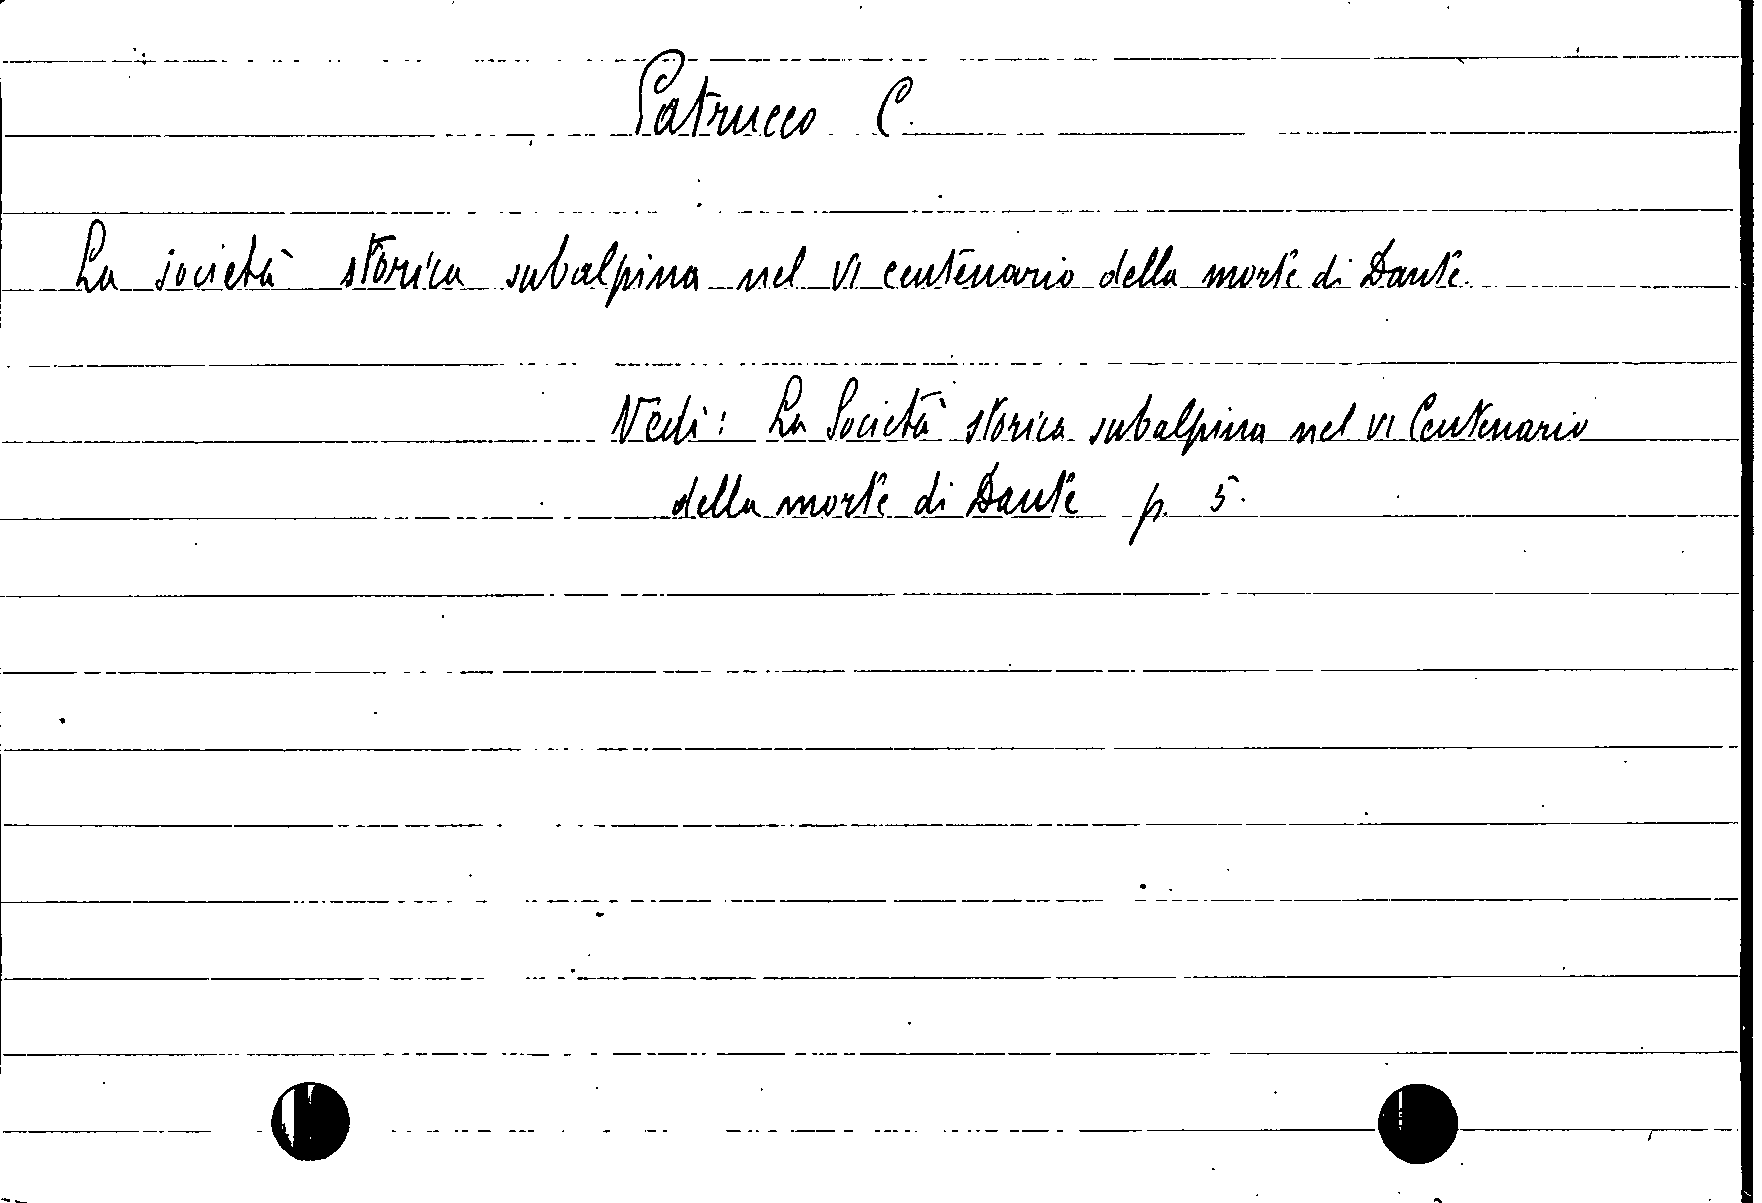 Patrucco C.
La società storica subalpina nel VI centenario della morte di Dante.
Vedi: La Società storica subalpina nel VI Centenario
della morte di Dante p. 5.